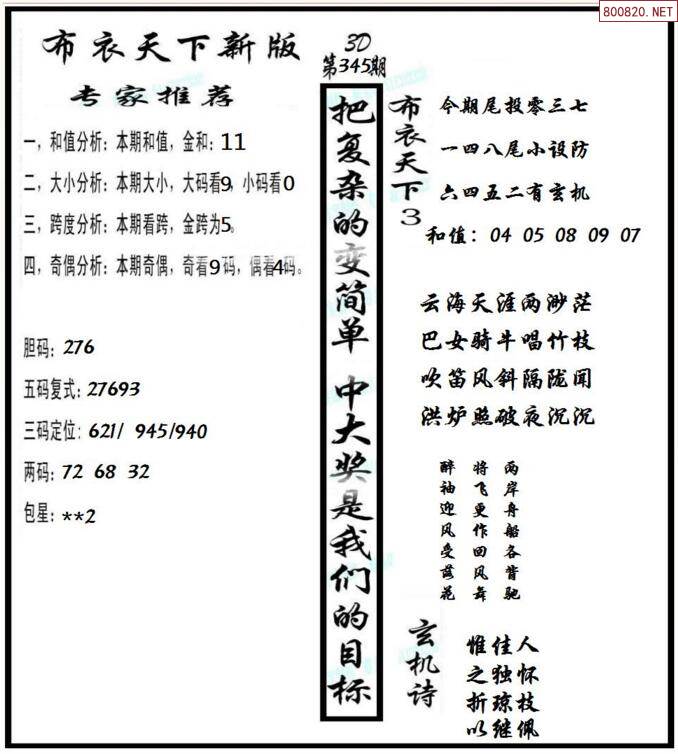 800820.NET
布衣天下新版
专家推荐
一，和值分析：本期和值，金和：11
二，大小分析：本期大小，大码看9，小码看0
三，跨度分析：本期看跨，金跨为5。
四，奇偶分析：本期奇偶，奇看9码，偶看4码。
胆码：276
五码复式：27693
三码定位：621/ 945/940
两码：72 68 32
包星：**2
3D
第345期
把复杂的变简单 中大奖是我们的目标
布衣天下3
今期尾投零三七
一四八尾小设防
六四五二有玄机
和值：04 05 08 09 07
云海天涯两渺茫
巴女骑牛唱竹枝
吹笛风斜隔陇闻
洪炉照破夜沉沉
两岸舟船各背驰
将飞更作回风舞
醉袖迎风受落花
玄机诗
惟佳人
之独怀
折琼枝
以继佩